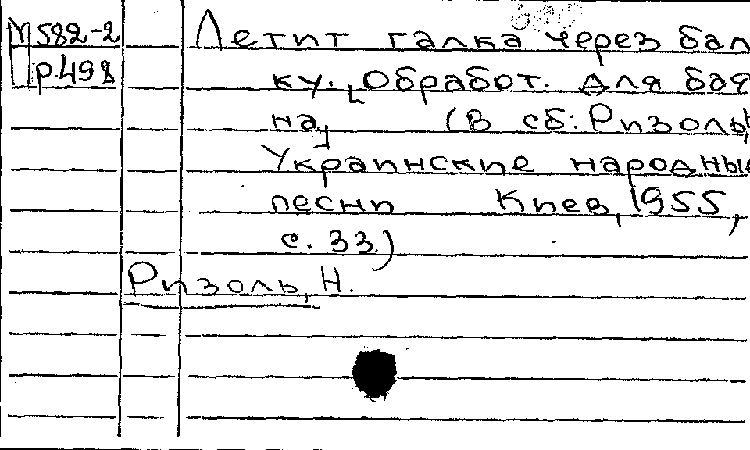 М 582-2
Р498
Летит галка через бал
ку. [Обработ. для бая
на] (В сб: Ризоль,
Украинские народные
песни Киев, 1955,
с. 33)
Ризоль, Н.